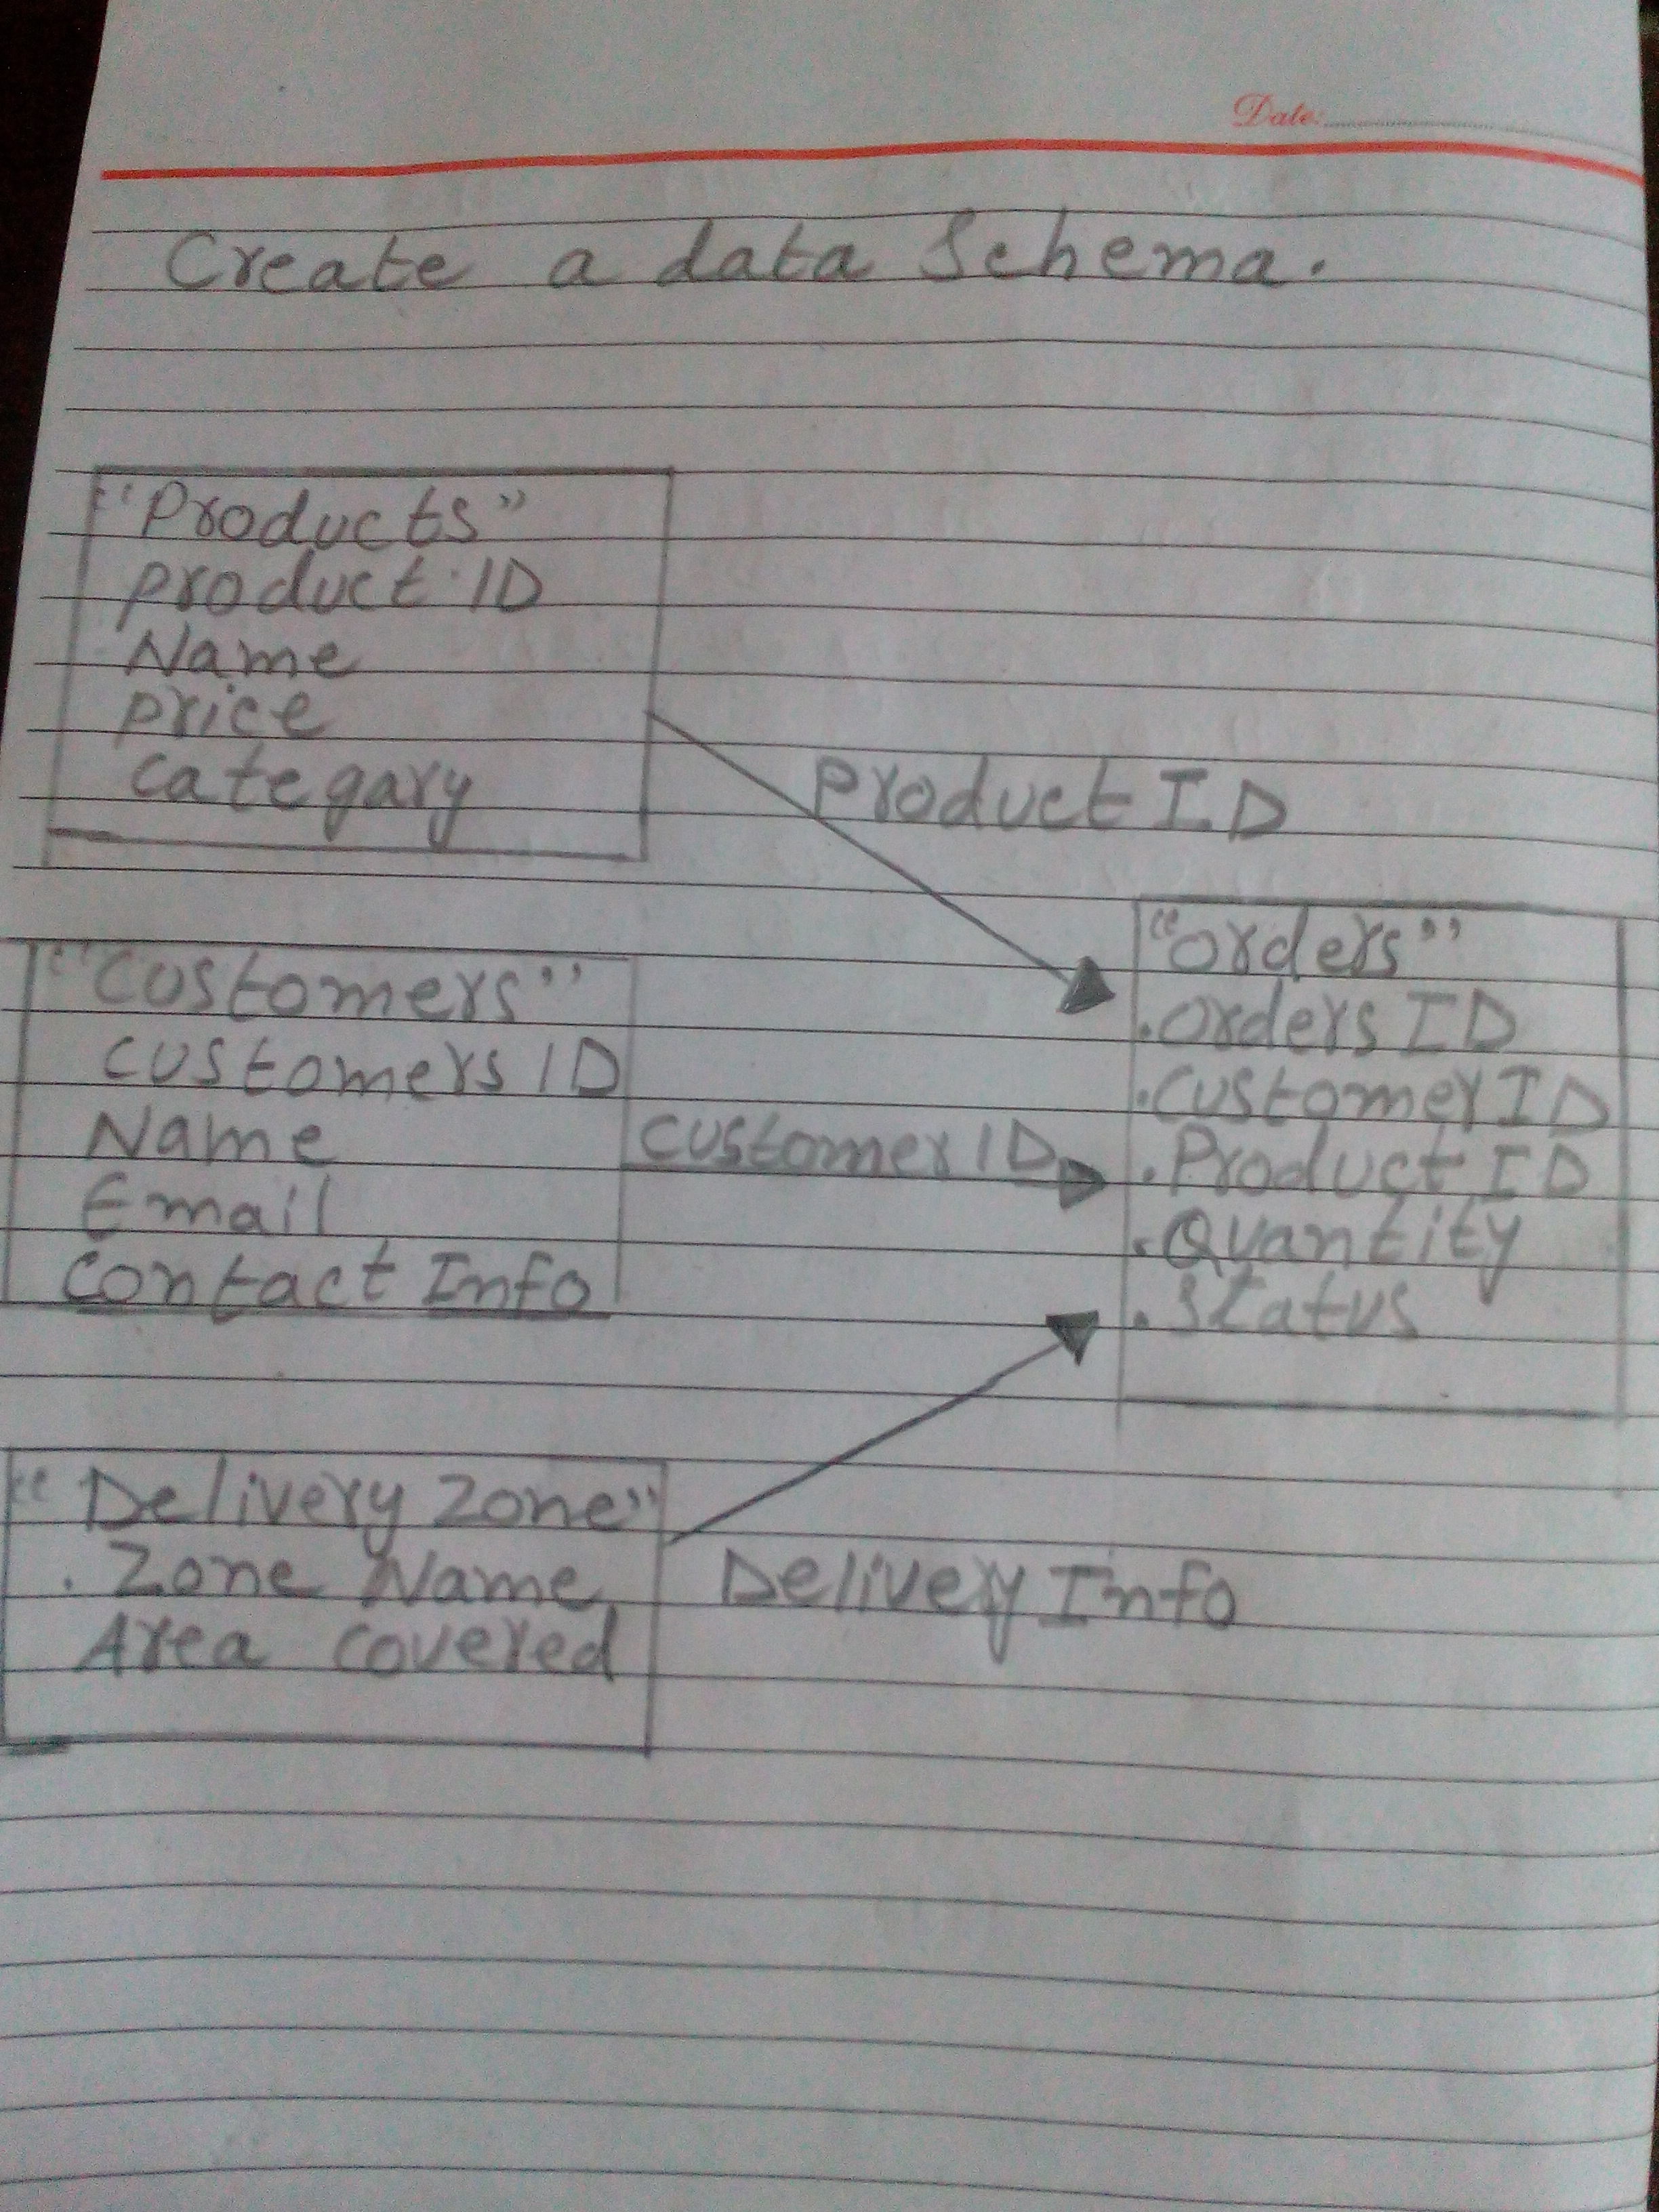 Date:
Create a data Schema.
"Products"
product ID
Name
price
categary
Product I.D
"Customers"
customers ID
Name
Email
Contact Info
customer ID
"orders"
.orders ID
.customer ID
.Product ID
.Quantity
.Status
"Delivery Zone"
. Zone Name
Area covered
Delivery Info